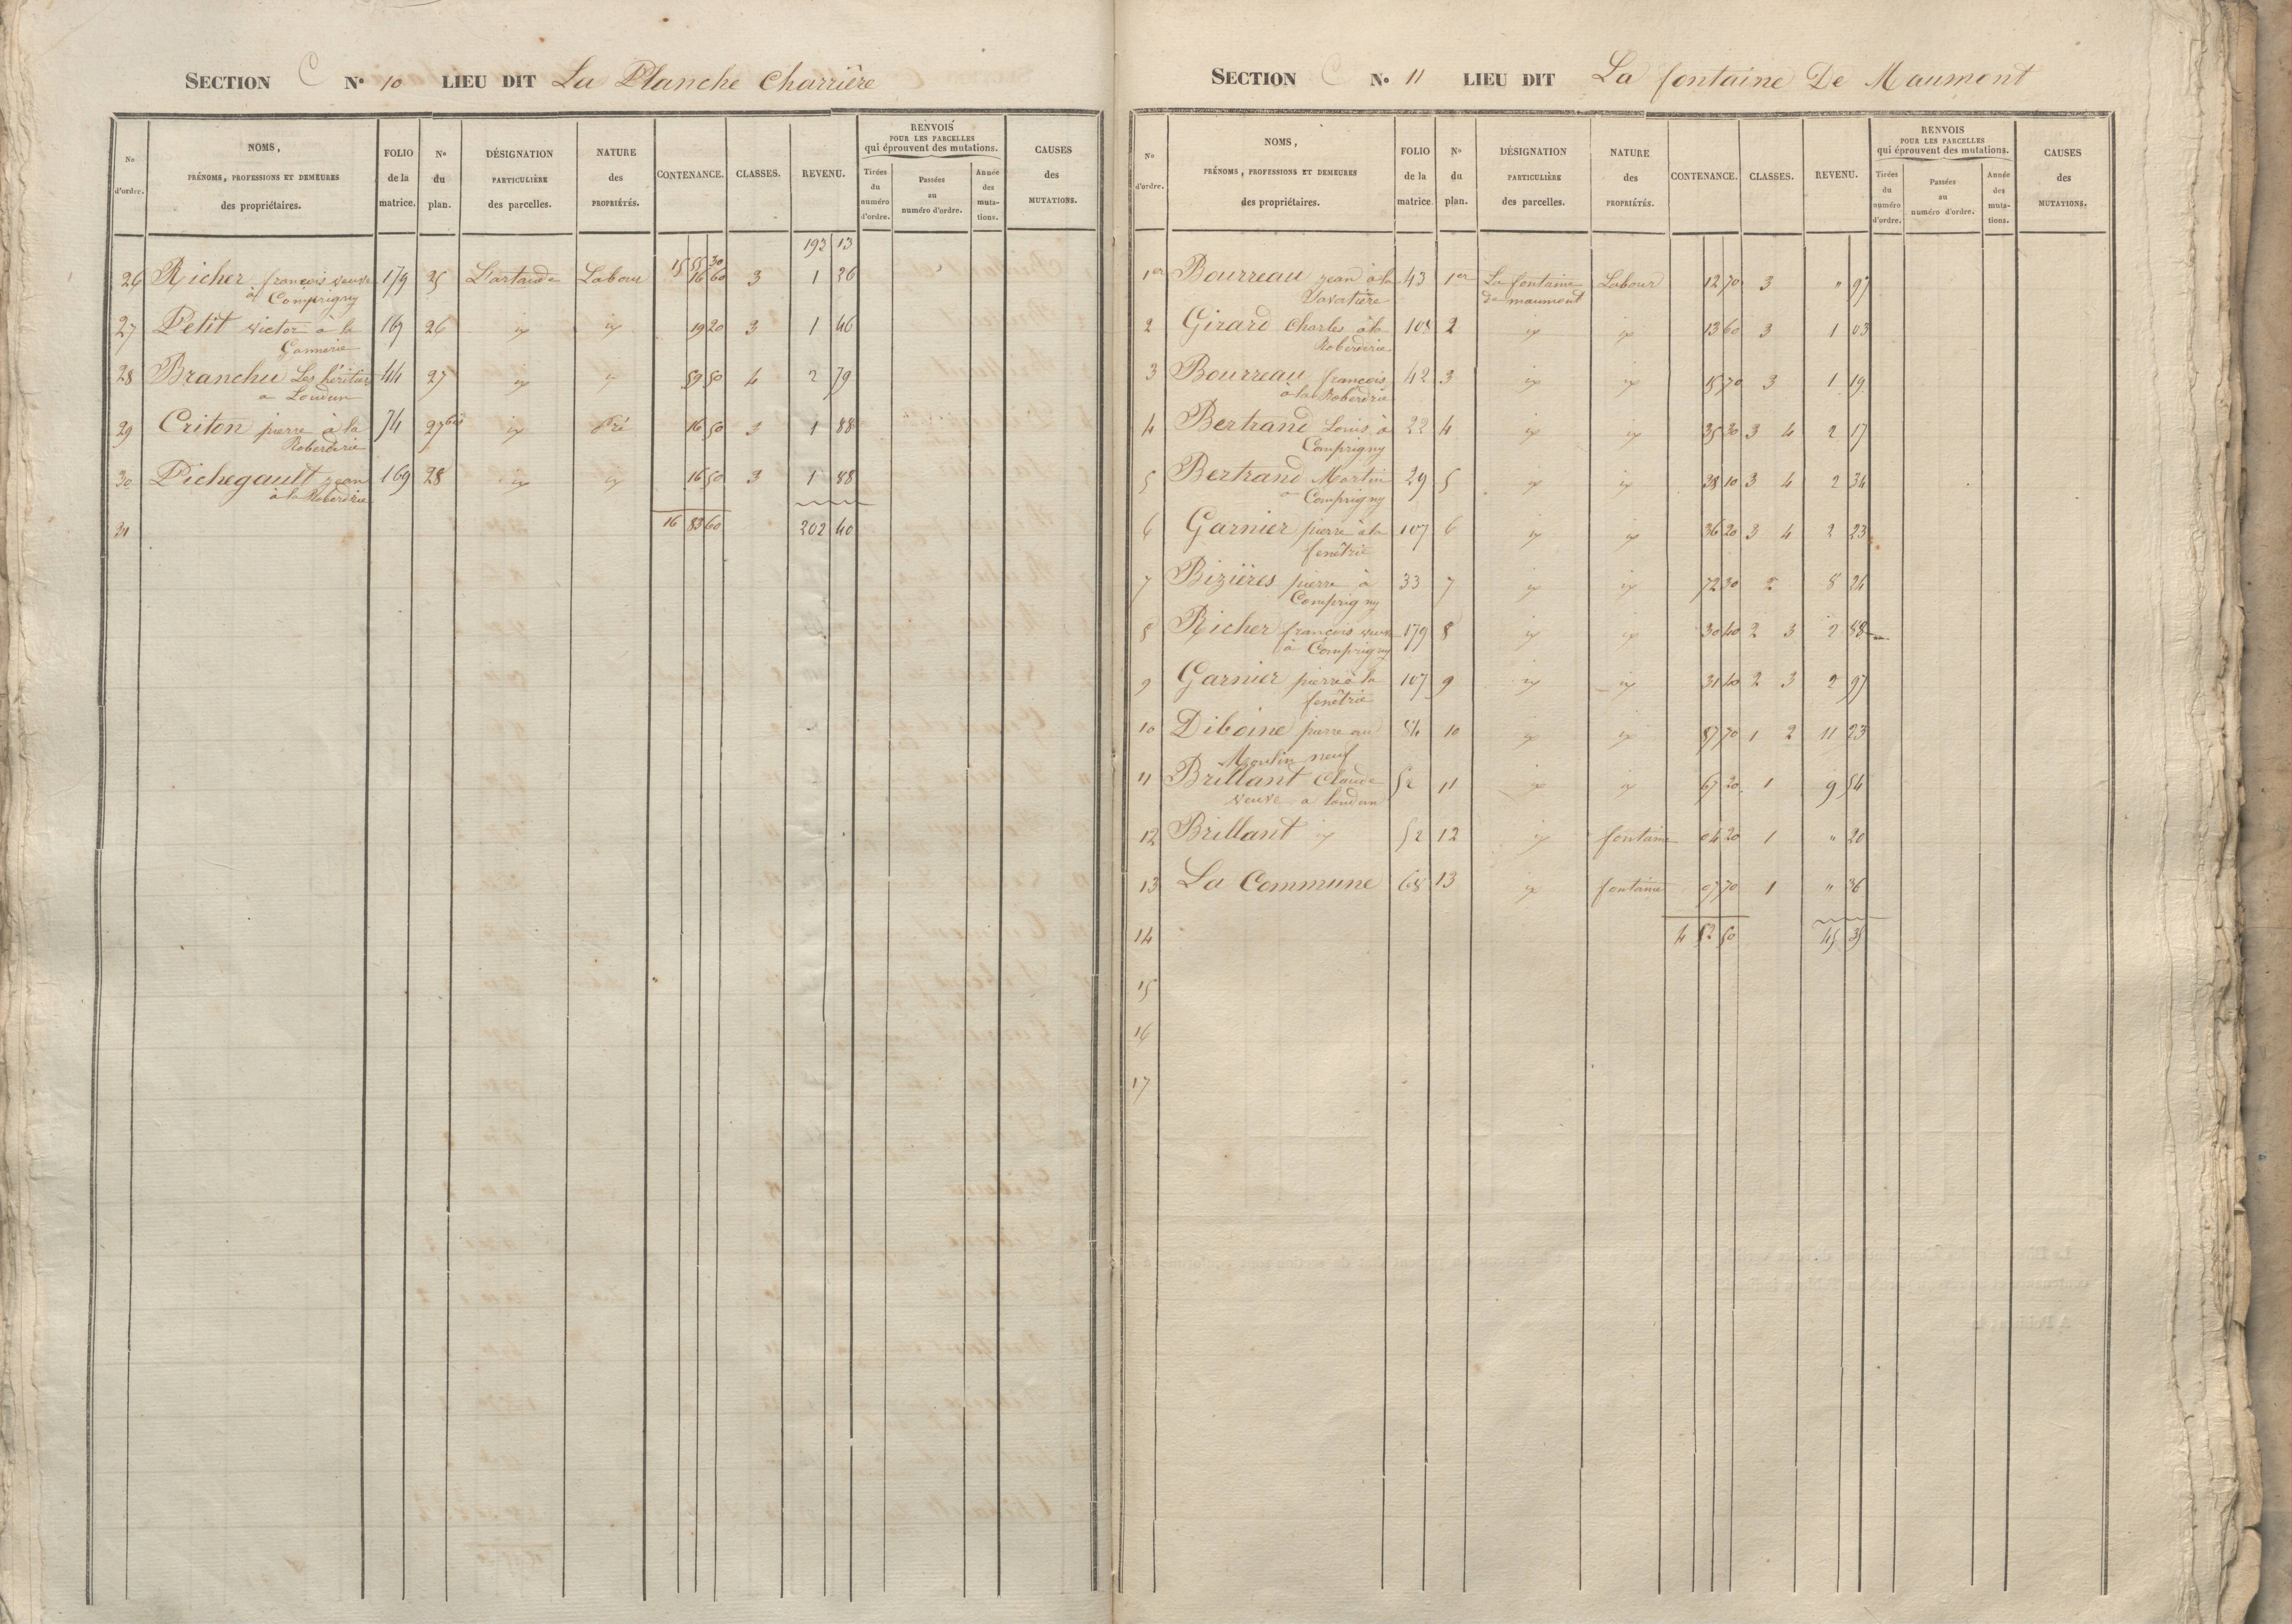 SECTION C No 10 LIEU DIT La Planche Charrière
No d'ordre. NOMS, PRÉNOMS, PROFESSIONS ET DEMEURES des propriétaires. FOLIO de la matrice. No du plan. DÉSIGNATION PARTICULIÈRE des parcelles. NATURE des PROPRIÉTÉS. CONTENANCE. CLASSES. REVENU. RENVOIS POUR LES PARCELLES qui éprouvent des mutations. Tirées du numéro d'ordre. Passées au numéro d'ordre. Année des mutations. CAUSES des MUTATIONS.
15 55 30 193 13
26 Richer françois veuve 179 25 L'artaude Labour 16 60 3 1 26
à Comprigny
27 Petit victor a la 167 26 id id 19 20 3 1 46
Gannerie
28 Branchu Les héritiers 44 27 id id 59 50 4 2 79
a Loudun
29 Criton pierre à la 74 27 bis id Pré 16 50 3 1 88
Roberderie
30 Pichegault jean 169 28 id id 16 50 3 1 88
à la Roberdrie
31 16 83 60 202 40
SECTION C No 11 LIEU DIT La fontaine De Maumont
No d'ordre. NOMS, PRÉNOMS, PROFESSIONS ET DEMEURES des propriétaires. FOLIO de la matrice. No du plan. DÉSIGNATION PARTICULIÈRE des parcelles. NATURE des PROPRIÉTÉS. CONTENANCE. CLASSES. REVENU. RENVOIS POUR LES PARCELLES qui éprouvent des mutations. Tirées du numéro d'ordre. Passées au numéro d'ordre. Année des mutations. CAUSES des MUTATIONS.
1er Bourreau jean à la 43 1er La fontaine Labour 12 70 3 " 97
de maumont
2 Girard Charles à la 108 2 id id 13 60 3 1 03
Roberderie
3 Bourreau françois 42 3 id id 15 70 3 1 19
à la Roberdrie
4 Bertrand Louis à 22 4 id id 35 30 3 4 2 17
Comprigny
5 Bertrand Martin 29 5 id id 38 10 3 4 2 34
a Comprigny
6 Garnier pierre à la 107 6 id id 36 20 3 4 2 23
fenêtrie
7 Bizières pierre à 33 7 id id 72 30 2 8 24
Comprigny
8 Richer françois veuve 179 8 id id 30 40 2 3 2 88
à Comprigny
9 Garnier pierre à la 107 9 id id 31 40 2 3 2 97
fenêtrie
10 Diboine pierre au 84 10 id id 87 70 1 2 11 23
Moulin neuf
11 Brillant Claude 52 11 id id 67 20 1 9 54
veuve a loudun
12 Brillant id 52 12 id fontaine 04 20 1 " 20
13 La Commune 68 13 id fontaine 07 70 1 " 36
14 4 52 50 45 35
15
16
17